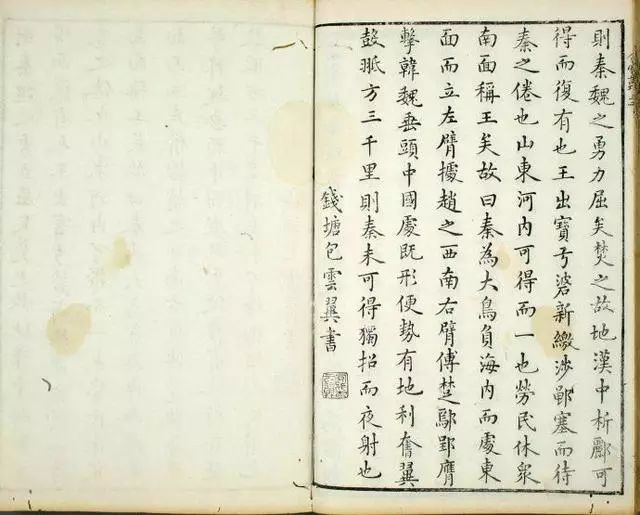 則秦魏之勇力屈矣楚之故地漢中析酈可
得而復有也王出寶弓碆新繳涉鄳塞而待
秦之倦也山東河內可得而一也勞民休眾
南面稱王矣故曰秦為大鳥負海內而處東
面而立左臂據趙之西南右臂傅楚鄢郢膺
擊韓魏垂頭中國處既形便勢有地利奮翼
鼓䎗方三千里則秦未可得獨招而夜射也
錢塘包雲翼書